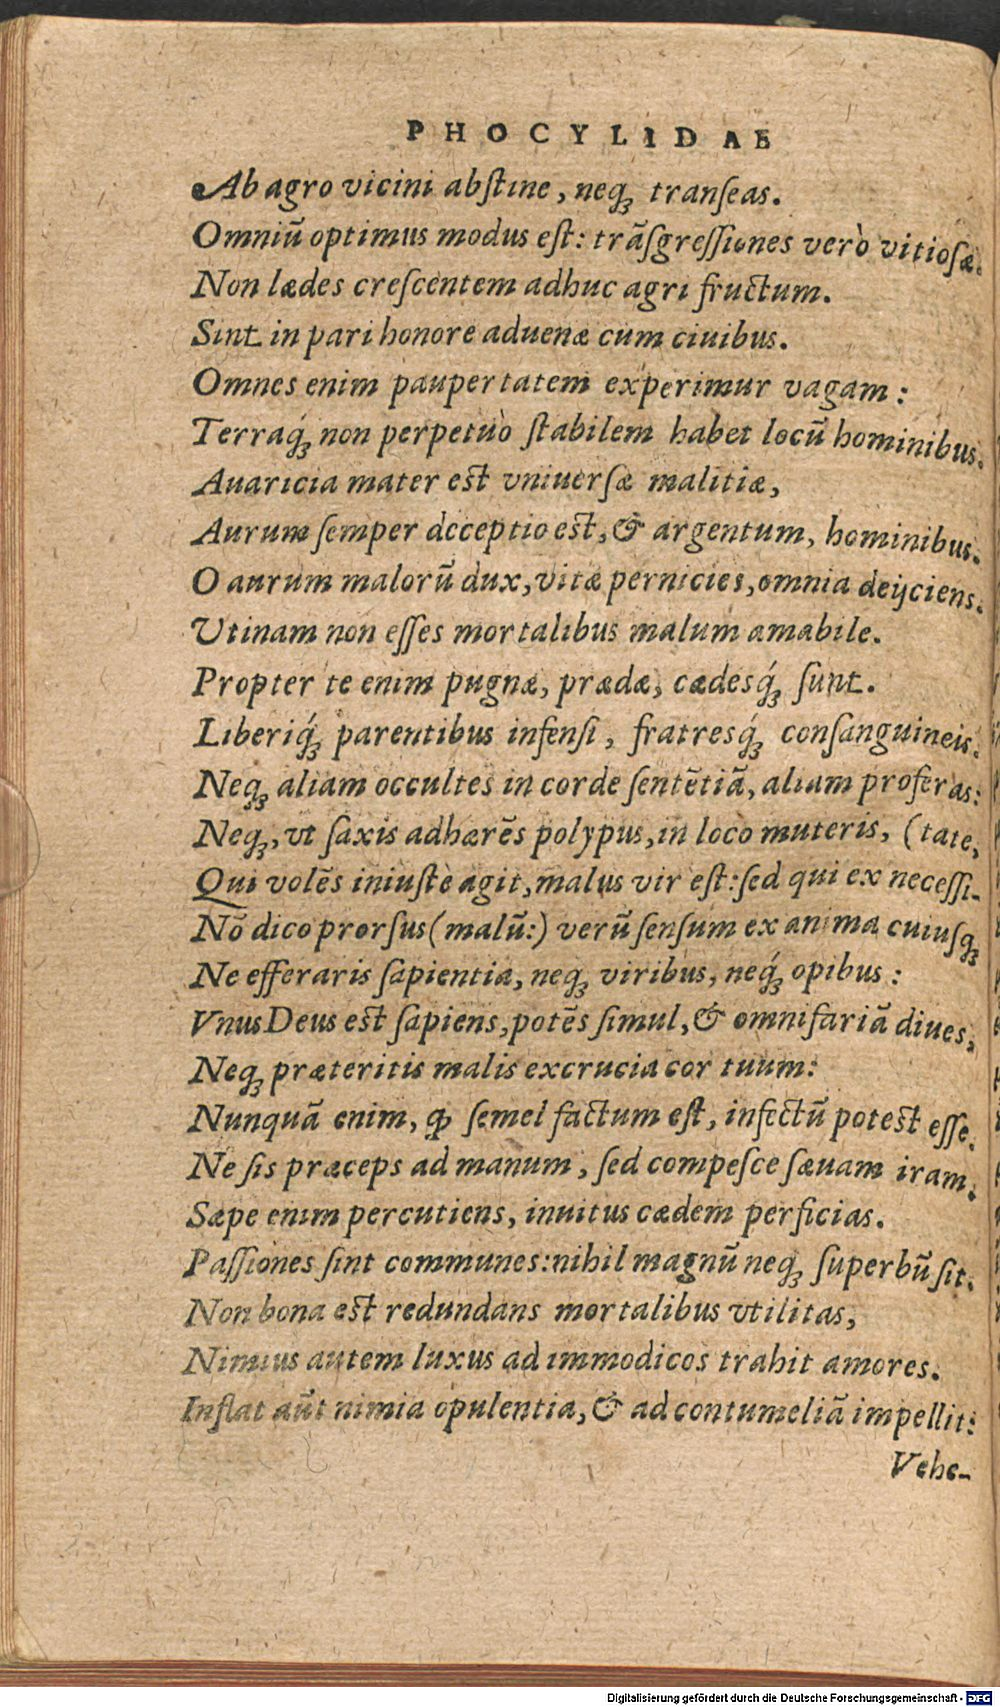 PHOCYLIDAE
Ab agro vicini abſtine, neq; tranſeas.
Omniū optimus modus eſt: trāſgreſſiones verò vitioſæ.
Non lædes creſcentem adhuc agri fructum.
Sint in pari honore aduenæ cum ciuibus.
Omnes enim paupertatem experimur vagam:
Terraq́; non perpetuò ſtabilem habet locū hominibus.
Auaricia mater eſt vniuerſæ malitiæ,
Aurum ſemper dcceptio eſt, & argentum, hominibus.
O aurum malorū dux, vitæ pernicies, omnia deijciens.
Vtinam non eſſes mortalibus malum amabile.
Propter te enim pugnæ, prædæ, cædesq́; ſunt.
Liberiq́; parentibus infenſi, fratresq́; conſanguineis.
Neq; aliam occultes in corde ſentētiā, aliam proferas:
Neq;, vt ſaxis adhærēs polypus, in loco muteris, (tate,
Qui volēs iniuſtè agit, malus vir eſt: ſed qui ex neceſſi-
Nō dico prorſus (malū:) verū ſenſum ex anima cuiuſq;
Ne efferaris ſapientia, neq; viribus, neq́; opibus:
Vnus Deus eſt ſapiens, potēs ſimul, & omnifariā diues,
Neq; præteritis malis excrucia cor tuum:
Nunquā enim, ꝙ ſemel factum eſt, infectū poteſt eſſe.
Ne ſis præceps ad manum, ſed compeſce ſæuam iram.
Sæpe enim percutiens, inuitus cædem perficias.
Paſſiones ſint communes: nihil magnū neq; ſuperbū ſit.
Non bona eſt redundans mortalibus vtilitas,
Nimius autem luxus ad immodicos trahit amores.
Inflat aūt nimia opulentia, & ad contumeliā impellit:
Vehe-
Digitalisierung gefördert durch die Deutsche Forschungsgemeinschaft - DFG